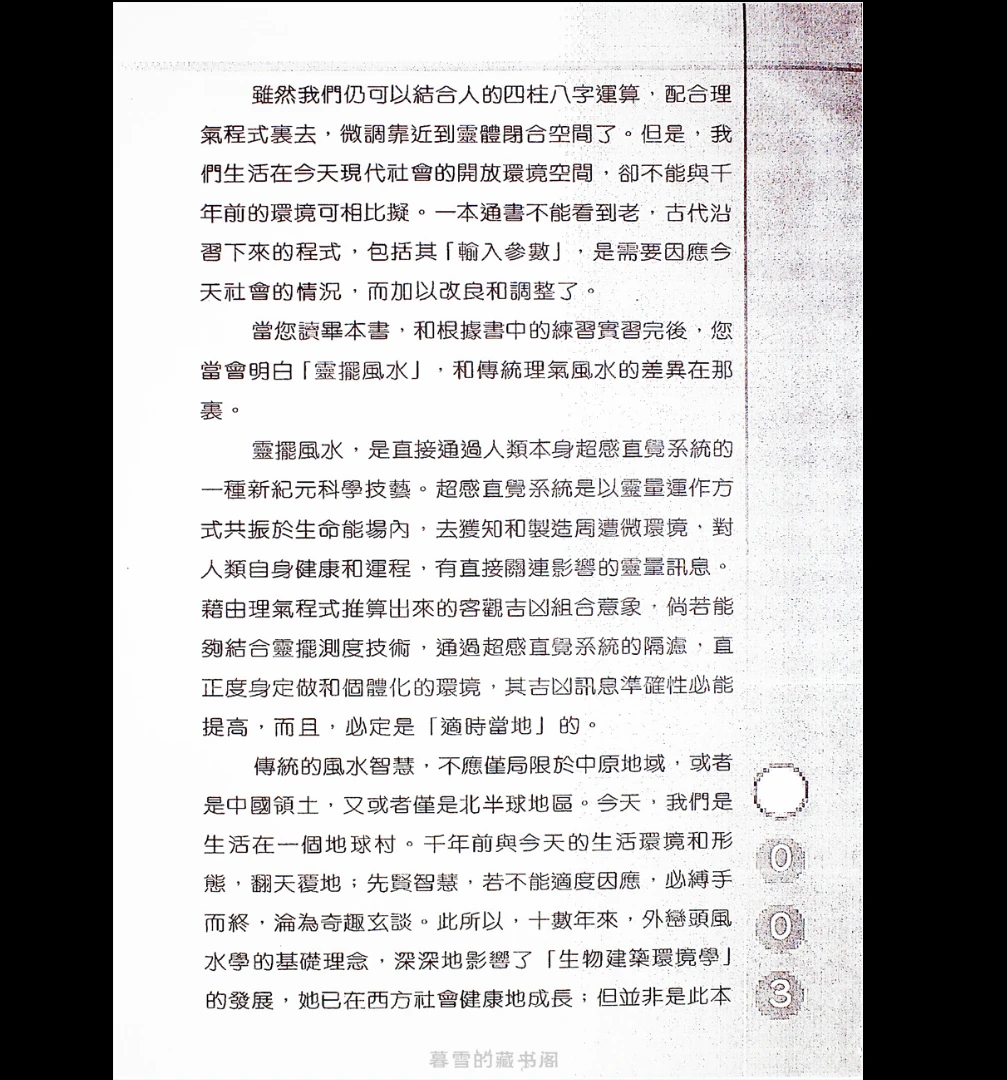 雖然我們仍可以結合人的四柱八字運算，配合理
氣程式裏去，微調靠近到靈體閉合空間了。但是，我
們生活在今天現代社會的開放環境空間，卻不能與千
年前的環境可相比擬。一本通書不能看到老，古代沿
習下來的程式，包括其「輸入參數」，是需要因應今
天社會的情況，而加以改良和調整了。
當您讀畢本書，和根據書中的練習實習完後，您
當會明白「靈擺風水」，和傳統理氣風水的差異在那
裏。
靈擺風水，是直接通過人類本身超感直覺系統的
一種新紀元科學技藝。超感直覺系統是以靈量運作方
式共振於生命能場內，去獲知和製造周遭微環境，對
人類自身健康和運程，有直接關連影響的靈量訊息。
藉由理氣程式推算出來的客觀吉凶組合意象，倘若能
夠結合靈擺測度技術，通過超感直覺系統的隔濾，直
正度身定做和個體化的環境，其吉凶訊息準確性必能
提高，而且，必定是「適時當地」的。
傳統的風水智慧，不應僅局限於中原地域，或者
是中國領土，又或者僅是北半球地區。今天，我們是
生活在一個地球村。千年前與今天的生活環境和形
態，翻天覆地；先賢智慧，若不能適度因應，必縛手
而終，淪為奇趣玄談。此所以，十數年來，外巒頭風
水學的基礎理念，深深地影響了「生物建築環境學」
的發展，她已在西方社會健康地成長；但並非是此本
0
0
3
暮雪的藏书阁